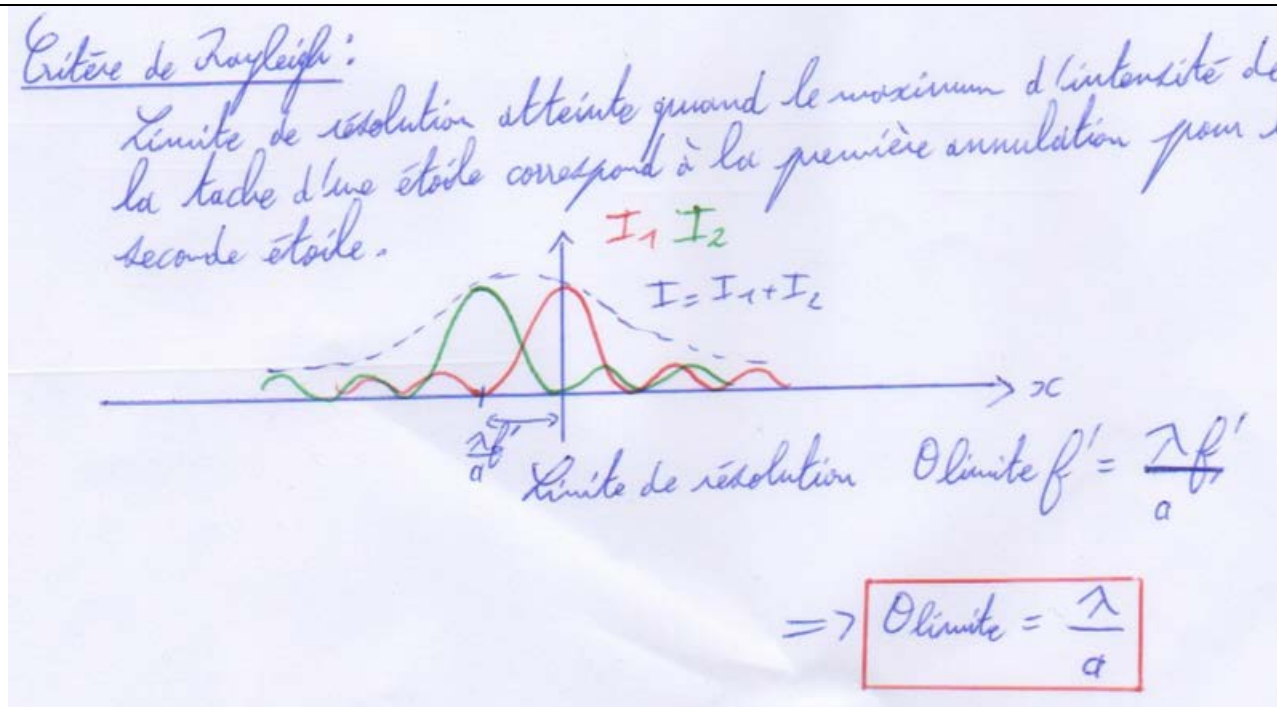 Critère de Rayleigh :
Limite de résolution atteinte quand le maximum d'intensité de
la tache d'une étoile correspond à la première annulation pour
seconde étoile.
I₁ I₂
I = I₁ + I₂
x
λf'/a
Limite de résolution θ limite f' = λf'/a
=> θ limite = λ/a